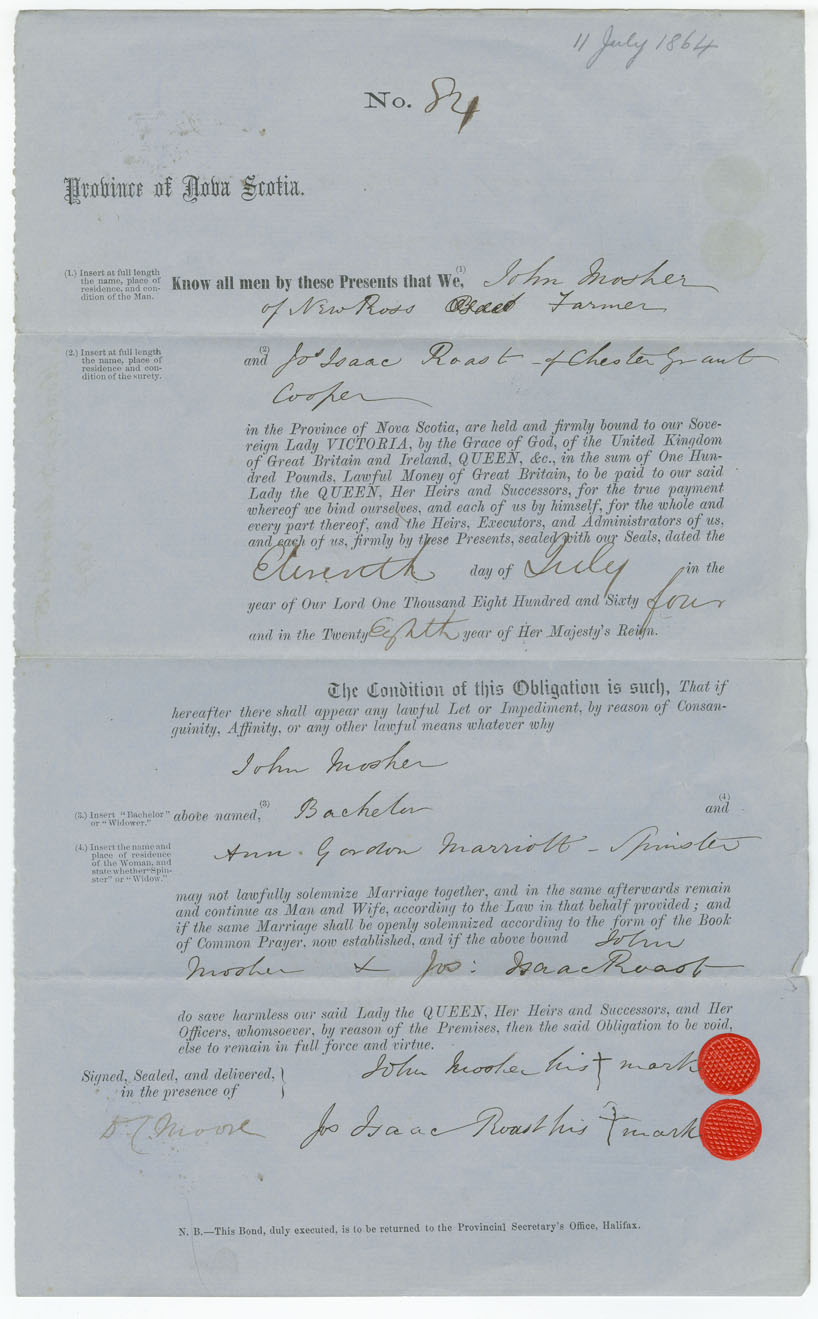 11 July 1864
No. 84
Province of Nova Scotia.
(1.) Insert at full length
the name, place of
residence, and con-
dition of the Man.
Know all men by these Presents that We, (1) John Mosher
of New Ross Farmer
(2.) Insert at full length
the name, place of
residence and con-
dition of the surety.
and (2) Jos Isaac Roast - of Chester Grant
Cooper
in the Province of Nova Scotia, are held and firmly bound to our Sove-
reign Lady VICTORIA, by the Grace of God, of the United Kingdom
of Great Britain and Ireland, QUEEN, &c., in the sum of One Hun-
dred Pounds, Lawful Money of Great Britain, to be paid to our said
Lady the QUEEN, Her Heirs and Successors, for the true payment
whereof we bind ourselves, and each of us by himself, for the whole and
every part thereof, and the Heirs, Executors, and Administrators of us,
and each of us, firmly by these Presents, sealed with our Seals, dated the
Eleventh day of July in the
year of Our Lord One Thousand Eight Hundred and Sixty four
and in the Twenty Eighth year of Her Majesty's Reign.
The Condition of this Obligation is such, That if
hereafter there shall appear any lawful Let or Impediment, by reason of Consan-
guinity, Affinity, or any other lawful means whatever why
John Mosher
(3.) Insert "Bachelor"
or "Widower."
above named, (3) Bachelor and (4)
(4.) Insert the name and
place of residence
of the Woman, and
state whether "Spin-
ster" or "Widow."
Ann Gordon Marriott - Spinster
may not lawfully solemnize Marriage together, and in the same afterwards remain
and continue as Man and Wife, according to the Law in that behalf provided; and
if the same Marriage shall be openly solemnized according to the form of the Book
of Common Prayer, now established, and if the above bound John
Mosher & Jos: Isaac Roast
do save harmless our said Lady the QUEEN, Her Heirs and Successors, and Her
Officers, whomsoever, by reason of the Premises, then the said Obligation to be void,
else to remain in full force and virtue.
Signed, Sealed, and delivered,
in the presence of
John Mosher his + mark
Moore
Jos Isaac Roast his + mark
N. B.—This Bond, duly executed, is to be returned to the Provincial Secretary's Office, Halifax.